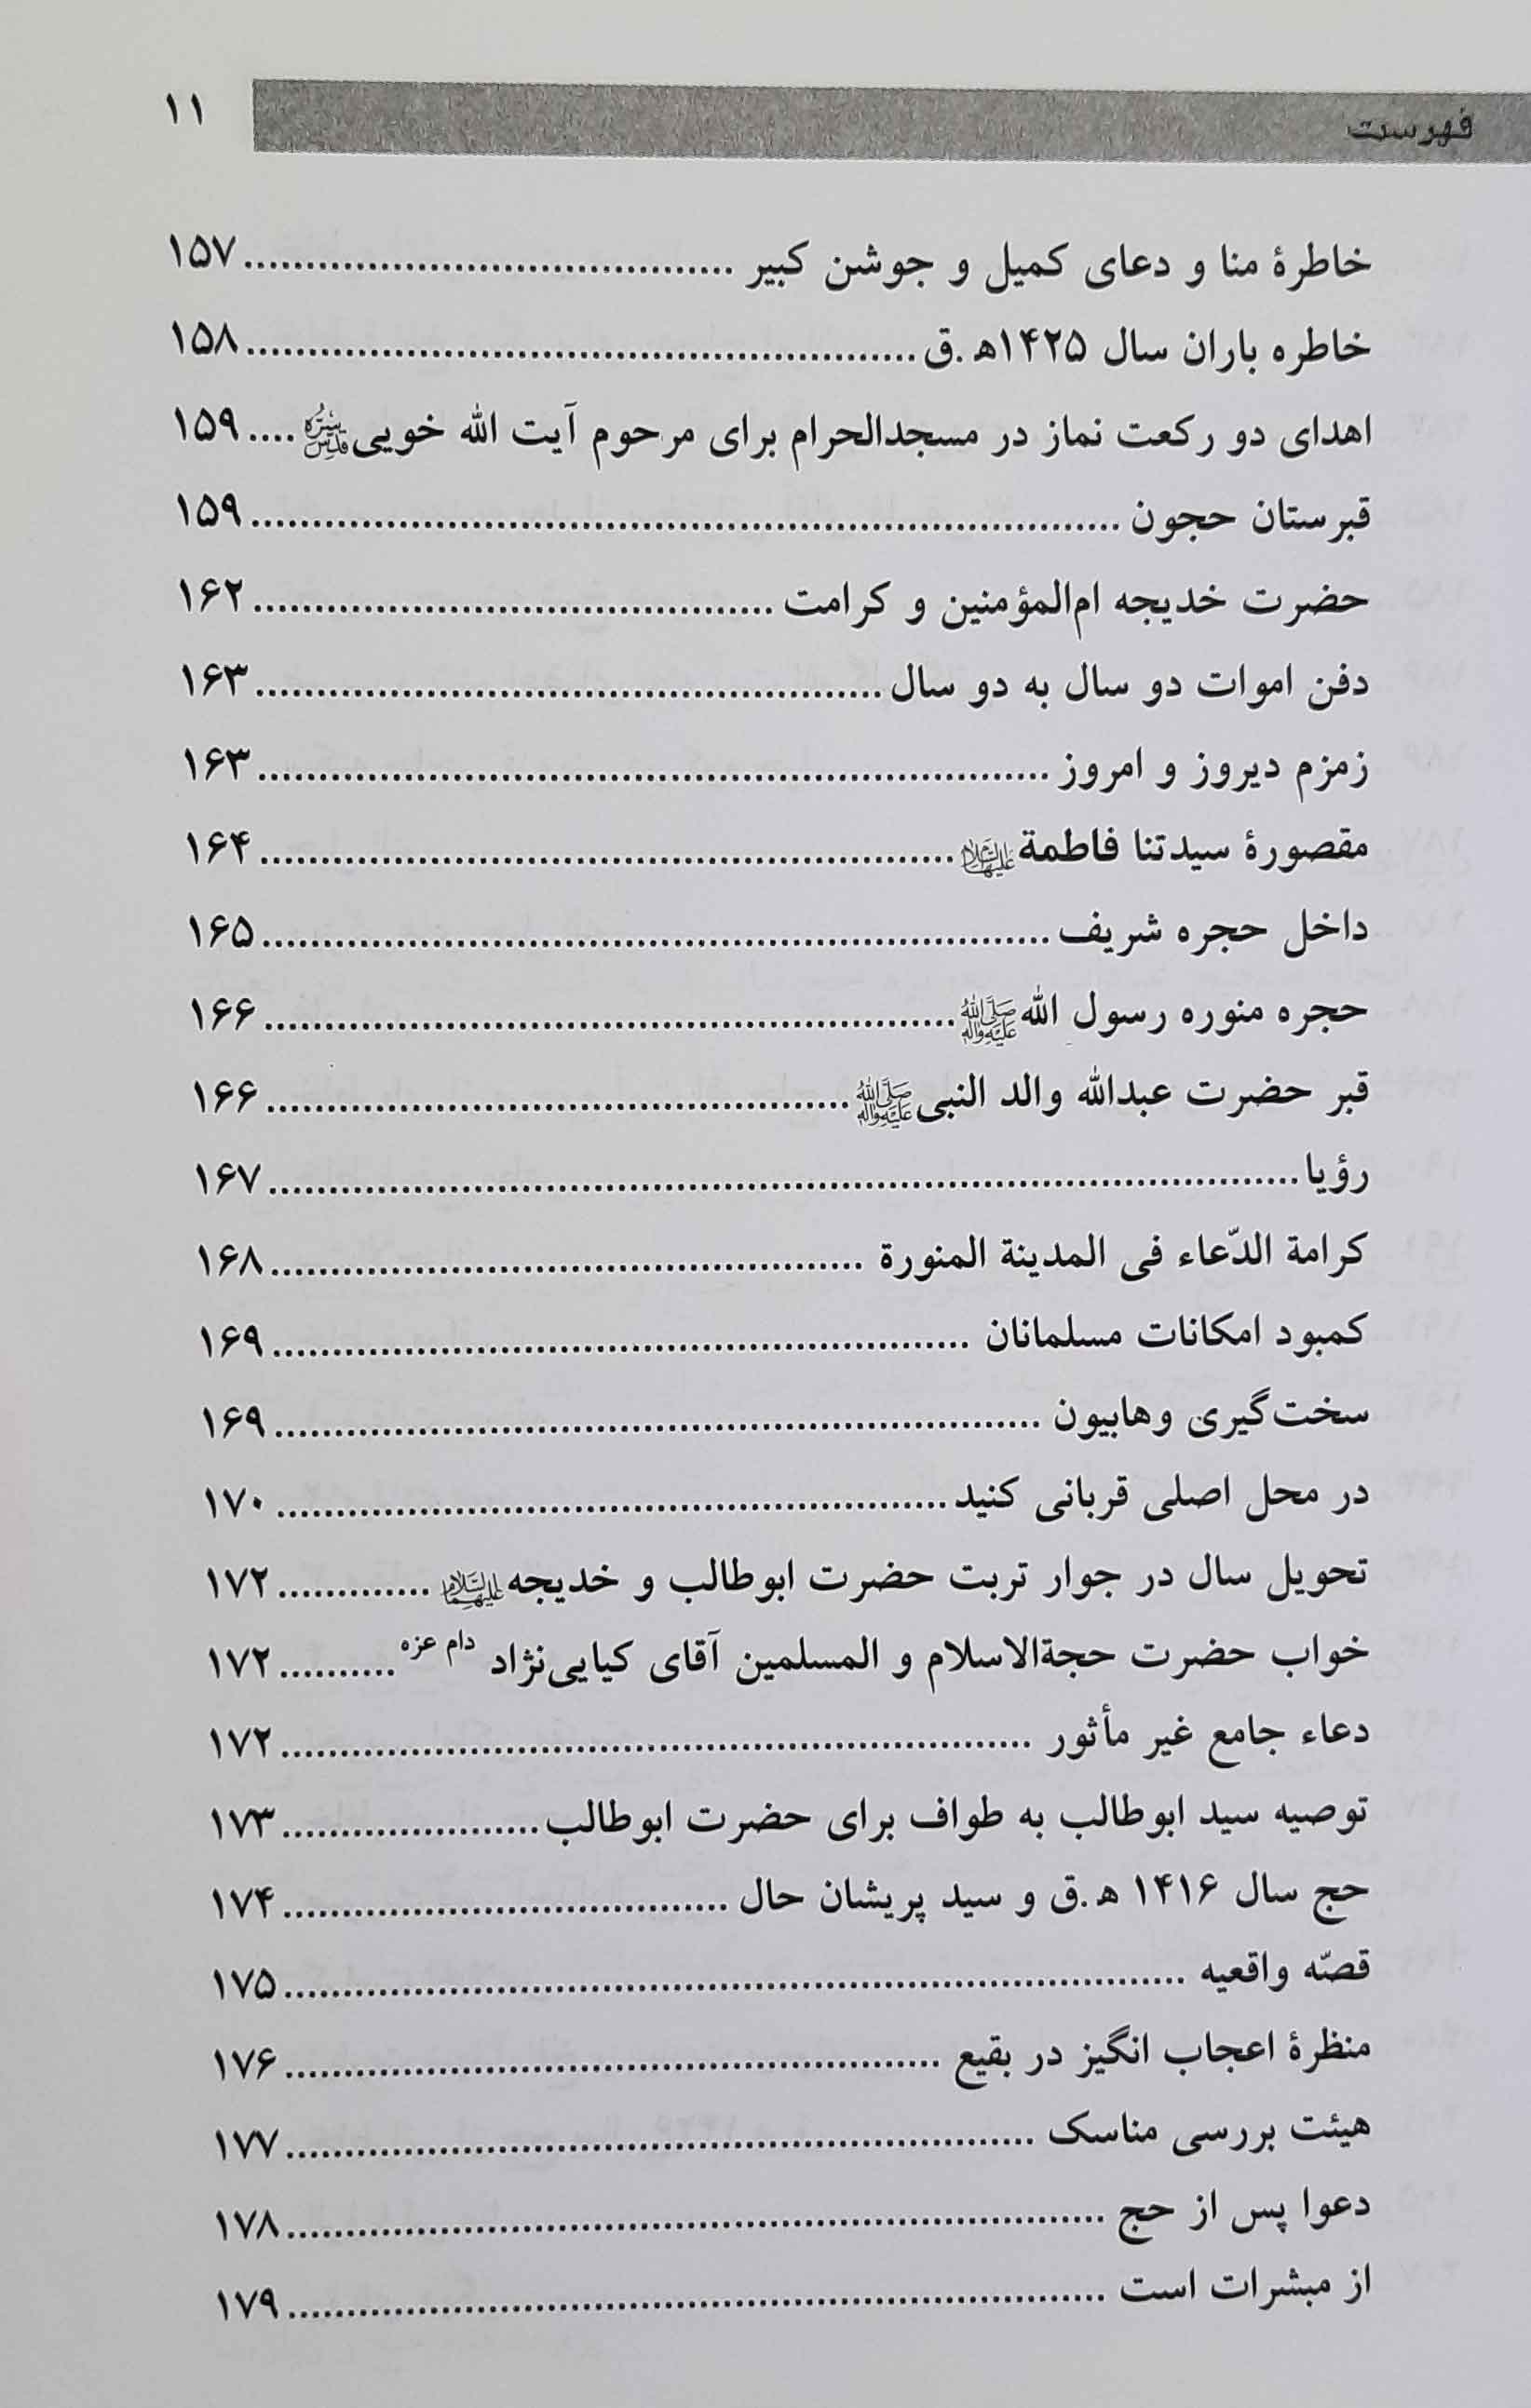 فهرست ۱۱
خاطرهٔ منا و دعای کمیل و جوشن کبیر ........................................ ۱۵۷
خاطره باران سال ۱۴۲۵ه‍ .ق ........................................ ۱۵۸
اهدای دو رکعت نماز در مسجدالحرام برای مرحوم آیت الله خویی قدّس سرّه .... ۱۵۹
قبرستان حجون ........................................ ۱۵۹
حضرت خدیجه ام‌المؤمنین و کرامت ........................................ ۱۶۲
دفن اموات دو سال به دو سال ........................................ ۱۶۳
زمزم دیروز و امروز ........................................ ۱۶۳
مقصورهٔ سیدتنا فاطمة علیها السلام ........................................ ۱۶۴
داخل حجره شریف ........................................ ۱۶۵
حجره منوره رسول الله صلّی الله علیه وآله ........................................ ۱۶۶
قبر حضرت عبدالله والد النبی صلّی الله علیه وآله ........................................ ۱۶۶
رؤیا ........................................ ۱۶۷
کرامة الدّعاء فی المدینة المنورة ........................................ ۱۶۸
کمبود امکانات مسلمانان ........................................ ۱۶۹
سخت‌گیری وهابیون ........................................ ۱۶۹
در محل اصلی قربانی کنید ........................................ ۱۷۰
تحویل سال در جوار تربت حضرت ابوطالب و خدیجه علیهما السّلام ............. ۱۷۲
خواب حضرت حجةالاسلام و المسلمین آقای کیایی‌نژاد دام عزه .......... ۱۷۲
دعاء جامع غیر مأثور ........................................ ۱۷۲
توصیه سید ابوطالب به طواف برای حضرت ابوطالب ...................... ۱۷۳
حج سال ۱۴۱۶ ه‍.ق و سید پریشان حال ........................................ ۱۷۴
قصّه واقعیه ........................................ ۱۷۵
منظرهٔ اعجاب انگیز در بقیع ........................................ ۱۷۶
هیئت بررسی مناسک ........................................ ۱۷۷
دعوا پس از حج ........................................ ۱۷۸
از مبشرات است ........................................ ۱۷۹